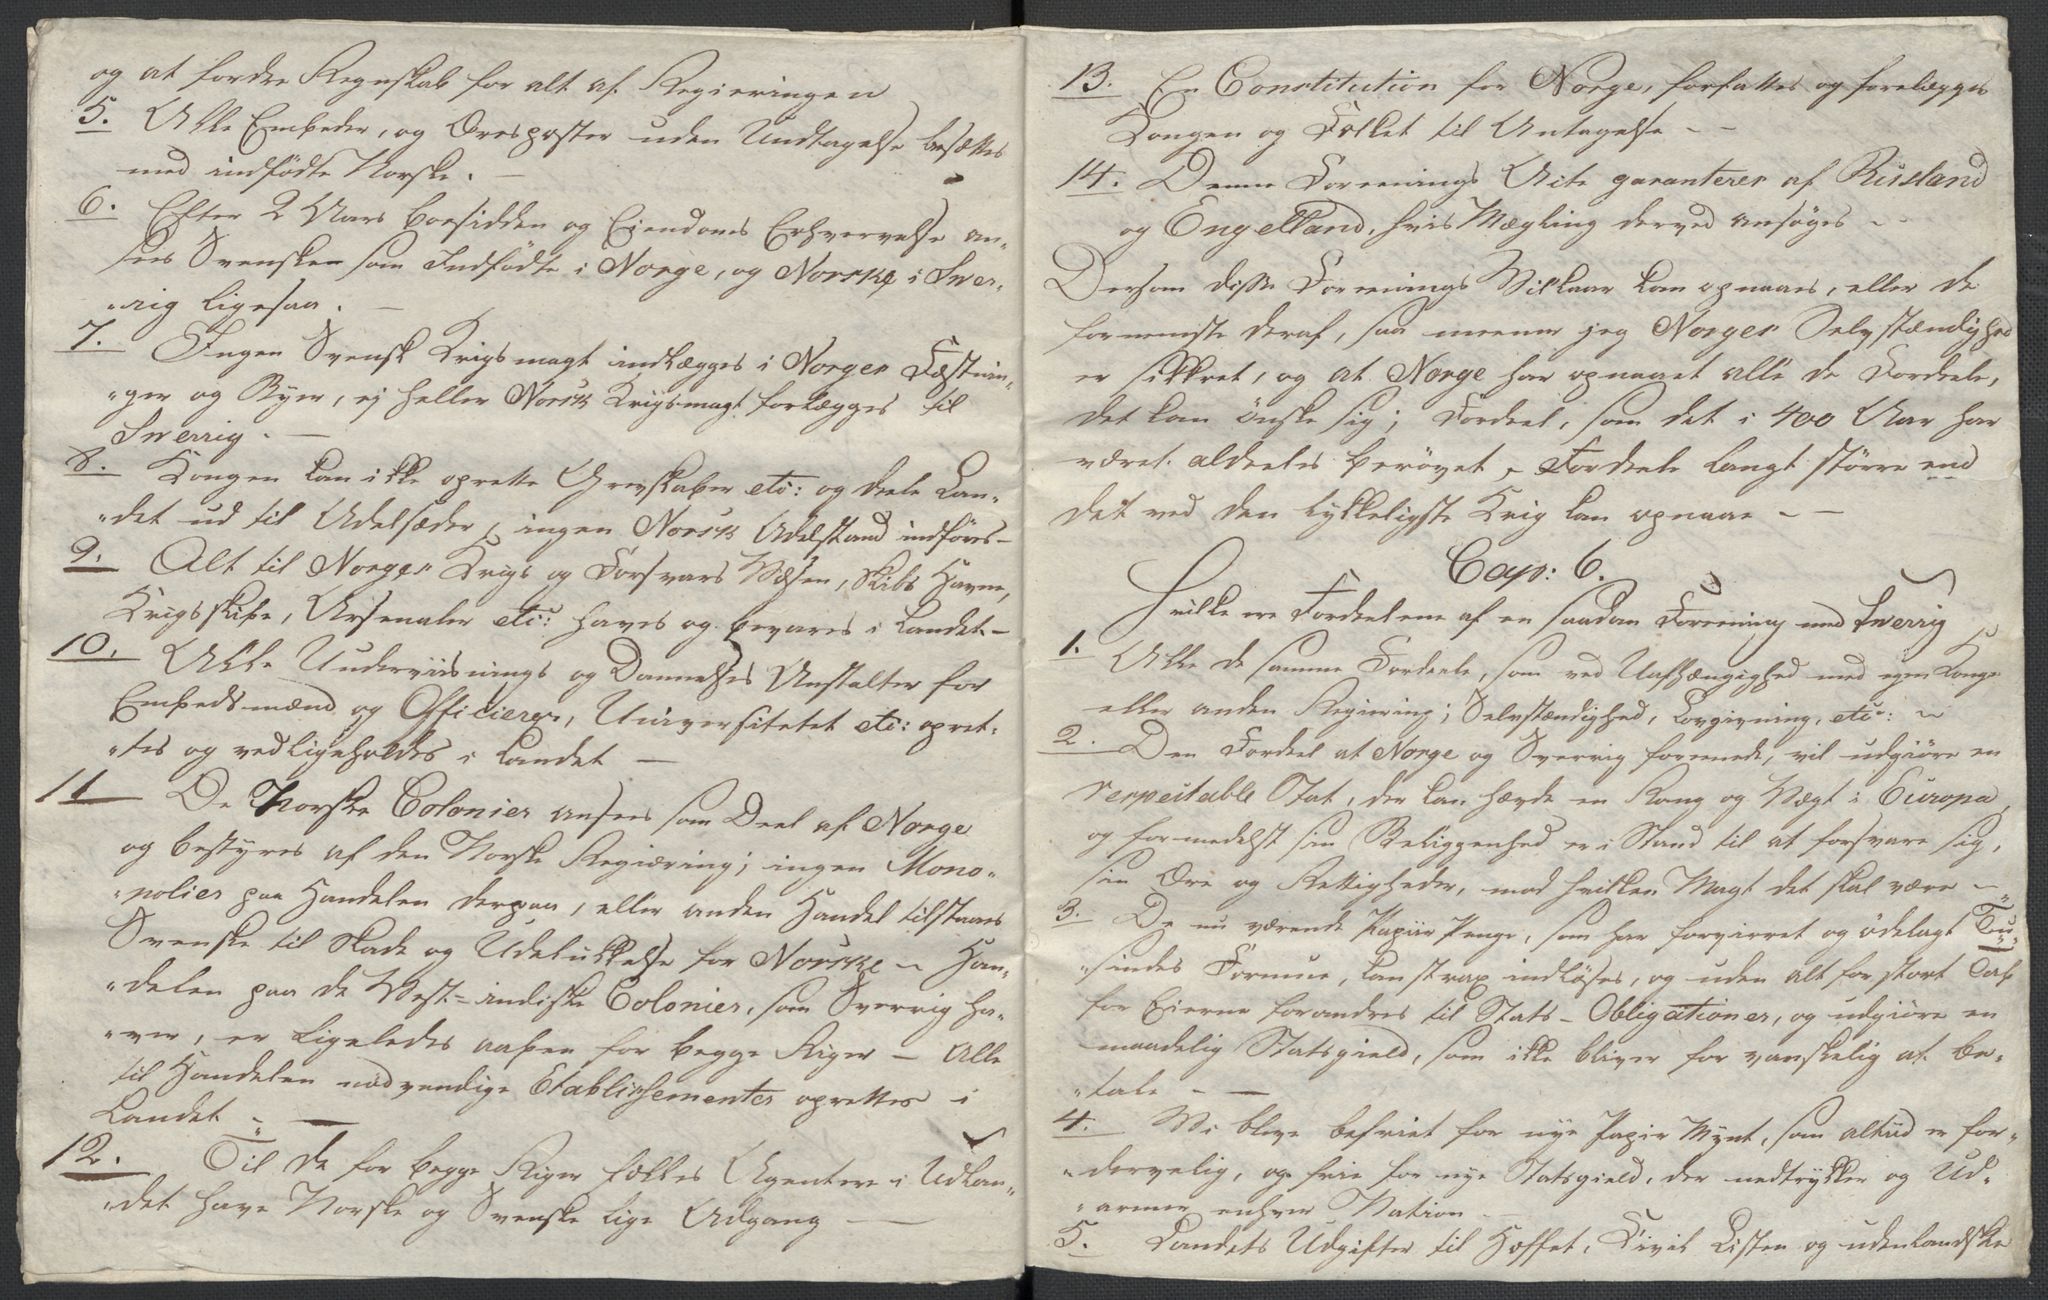 og at fordre Regnskab for alt af Regieringen
5. Alle Embeder, og Æresposter uden Undtagelse besættes
med indfödte Norske. —
6. Efter 2 Aars Boesidden og Eiendoms Erhvervelse an„
sees Svenske som Indfödte i Norge, og Norske i Sver„
„rig ligesaa. —
7. Ingen Svensk Krigsmagt indlægges i Norges Fæstnin„
„ger og Byer, ej heller Norsk Krigsmagt forlægges til
Sverrig. —
8. Kongen kan ikke oprette Grevskaber etc: og deele Lan„
„det ud til Adelsæder, ingen Norsk Adelstand indföres —
9. Alt til Norges Krigs og Forsvars Væsen, Skibs Havne,
Krigsskibe, Arsenaler etc: haves og bevares i Landet —
10. Alle Underviisnings og Dannelses Anstalter for
Embedsmænd og Officierer, Universitetet etc: opret„
„tes og vedligeholdes i Landet —
11 De Norske Colonier ansees som Deel af Norge
og bestyres af den Norske Regiæring; ingen Mono„
„polier paa Handelen derpaa, eller anden Handel tilstaaes
Svenske til Skade og Udelukkelse for Norske — Han„
„delen paa de Vest-indiske Colonier, som Sverrig ha„
„ver, er ligeledes aaben for begge Riger — Alle
til Handelen nödvendige Etablissementer oprettes i
Landet —
12. Til de for begge Riger fælles Agenterne i Udlan„
„det have Norske og Svenske lige Adgang —
13. En Constitution for Norge, forfattes og forelægges
Kongen og Folket til Antagelse — —
14. Denne Foreenings Akte garanteres af Russland
og Engelland, hvis Mægling derved ansöges —
Dersom disse Foreenings Vilkaar kan opnaaes, eller de
fornemste deraf, saa meener jeg Norges Selvstændighed
er sikkret, og at Norge har opnaaet alle de Fordeele,
det kan önske sig; Fordeel, som det i 400 Aar har
været aldeeles berövet, Fordeele langt större end
det ved den lykkeligste Krig kan opnaae — —
Cap: 6.
Hvilke ere Fordeelene af en saadan Foreening med Sverrig
1. Alle de samme Fordeele, som ved Uafhængighed med egen Konge
eller anden Regiering; Selvstændighed, Lovgivning, etc: —
2. Den Fordeel at Norge og Sverrig foreenede, vil udgiöre en
respectable Stat, der kan hævde en Rang og Vægt i Europa,
og formedelst sin Beliggenhed er i Stand til at forsvare sig,
sin Ære og Rettigheder, mod hvilken Magt det skal være —
3. De nu værende Papiir Penge, som har forvirret og ödelagt Tu„
„sindes Formue, kan strax indlöses, og uden alt for stort Tab
for Eierne forandres til Stats-Obligationer, og udgiöre en
maadelig Statsgield, som ikke bliver for vanskelig at be„
„tale — —
4. Vi blive befriet for nye Papir Mynt, som altiid er for„
„dervelig, og frie for nye Statsgield, der nedtrykker og Ud„
„armer enhver Nation —
5. Landets Udgifter til Hoffet, Civil Listen og udenlandske